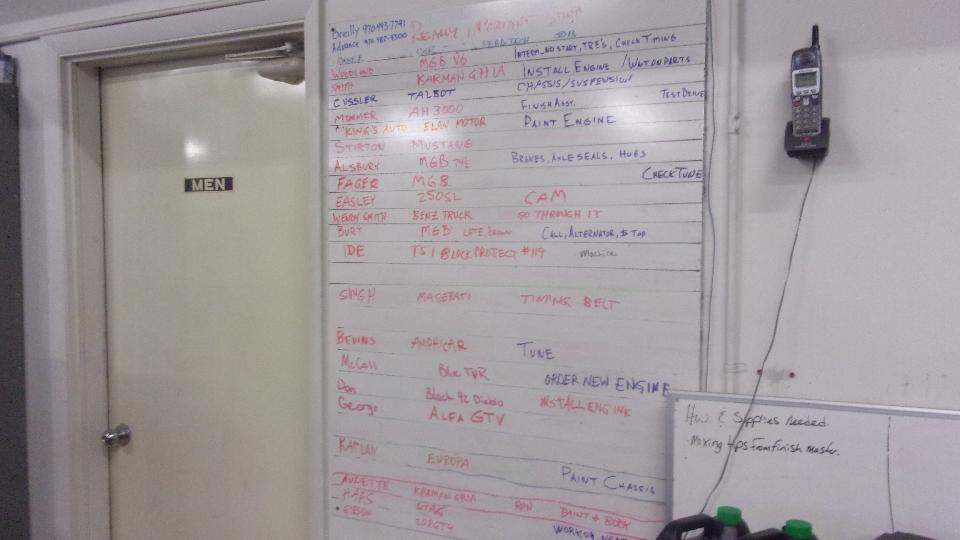 MEN
Breilly 970 493 7791
Advance 970 482-9300
REALLY IMPORTANT
OWNER CAR LEAD TECH JOB
WOODLAND MGB V6 INTERM. NO START, TRE'S, CHECK TIMING
SMITH KARMAN GHIA INSTALL ENGINE / WAIT ON PARTS
CUSSLER TALBOT CHASSIS/SUSPENSION
MOMMER AH 3000 FINISH ASSY. TEST DRIVE
KING'S AUTO ELAN MOTOR PAINT ENGINE
STIRTON MUSTANG
ALSBURY MGB 74½ BRAKES, AXLE SEALS, HUBS
FAGER MGB CHECK TUNE
EASLEY 250SL CAM
WENDY SMITH BENZ TRUCK GO THROUGH IT
BURT MGB CALL, ALTERNATOR, & TOP
IDE TS1 BLOCK PROJECT #119 Machine
SINGH MASERATI TIMING BELT
BEVINS AMPHICAR TUNE
McCall Blue TVR ORDER NEW ENGINE
Don Black 92 Diablo INSTALL ENGINE
George ALFA GTV
KAPLAN EUROPA PAINT CHASSIS
AUDETTE KARMAN GHIA RUN PAINT + BODY
HAAS STAG
GIBSON
H.W. & Supplies needed.
- Mixing tips from finish master.